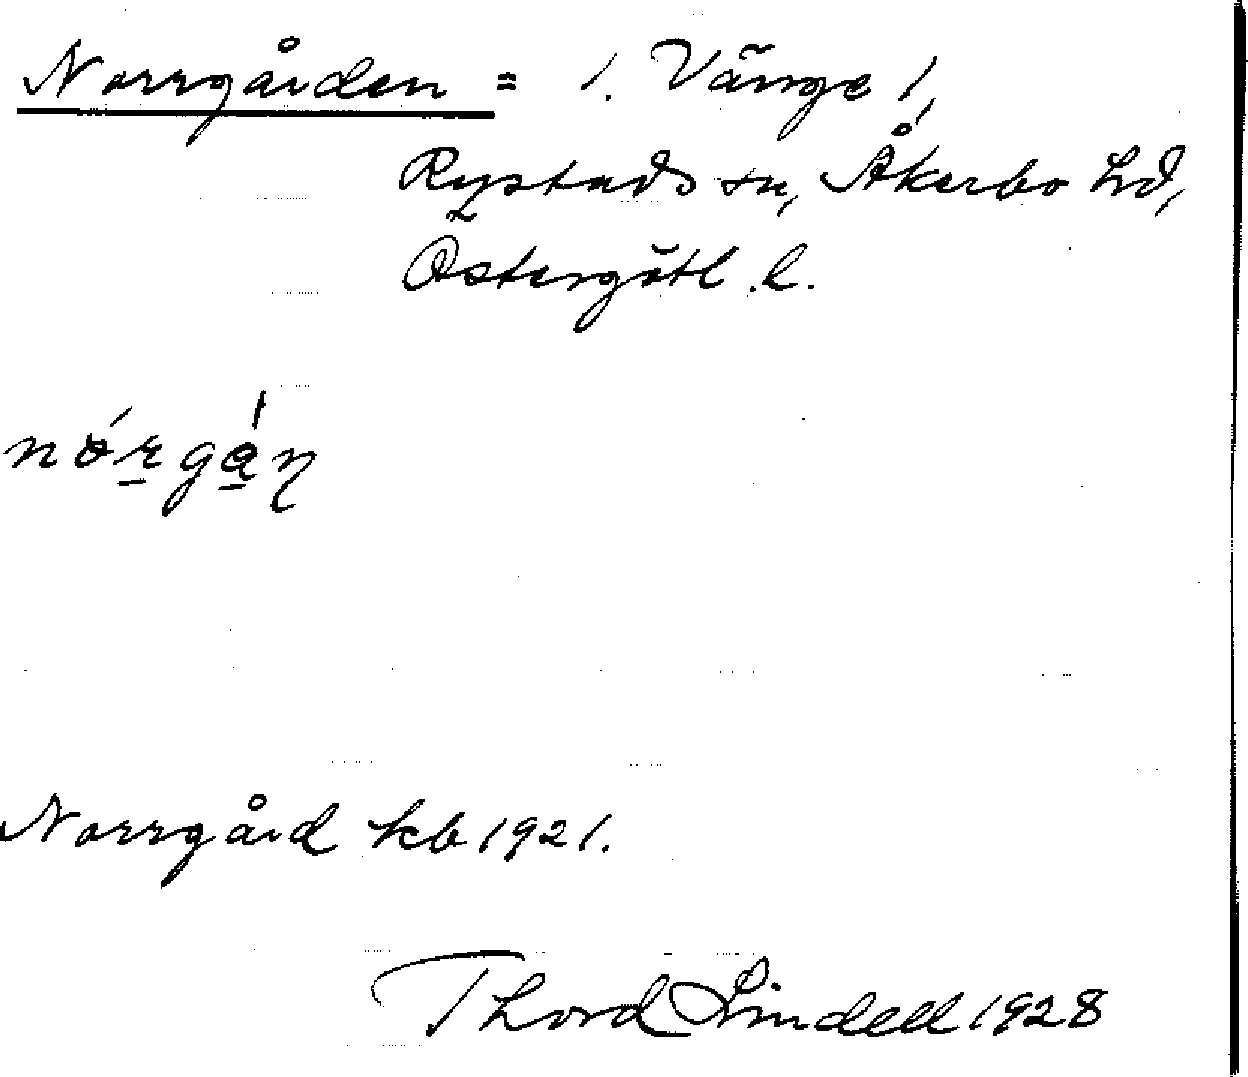 Norrgården = 1. Vänge 1,
Rystads sn, Åkerbo hd,
Östergötl. l.
Norrgård kb 1921.
Thord Lindell 1928